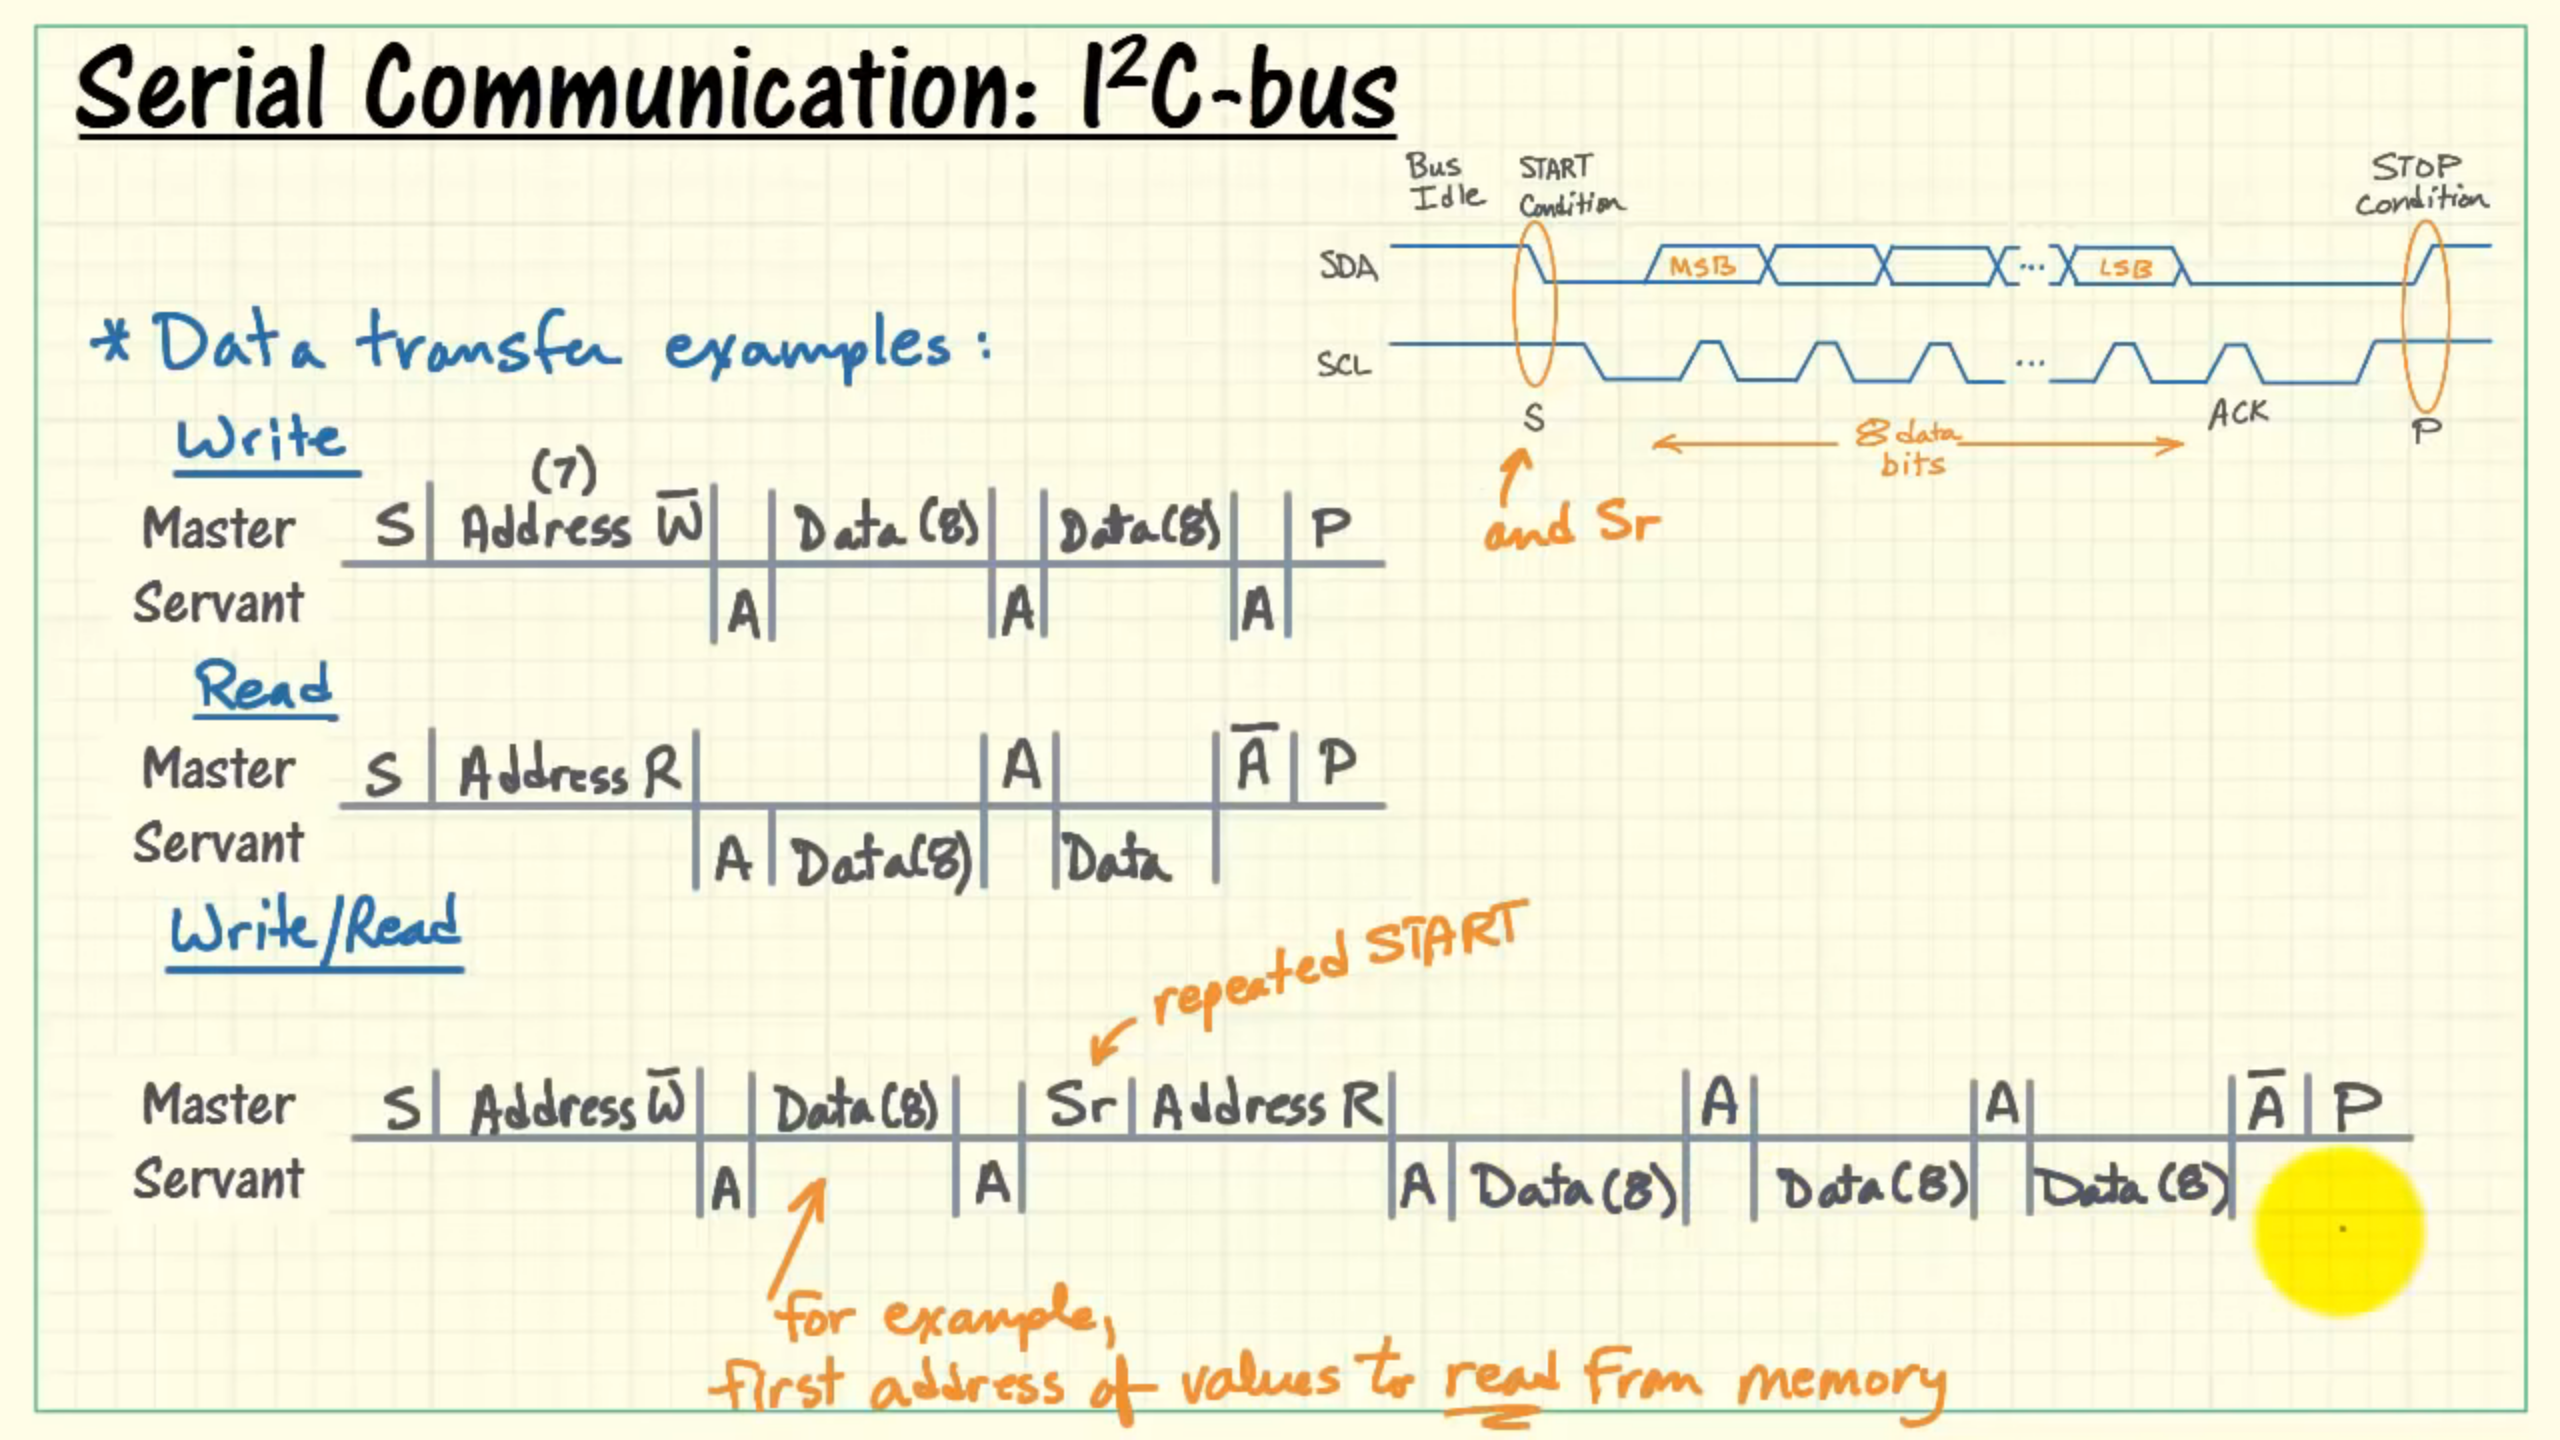 Serial Communication: I²C-bus
Bus Idle
START Condition
STOP Condition
SDA MSB ... LSB
SCL ...
S ACK P
8 data bits
and Sr
* Data transfer examples:
Write
(7)
Master S Address W̅ Data (8) Data(8) P
Servant A A A
Read
Master S Address R A A̅ P
Servant A Data(8) Data
Write/Read
repeated START
Master S Address W̅ Data(8) Sr Address R A A A̅ P
Servant A A A Data(8) Data(8) Data(8)
for example,
first address of values to read from memory